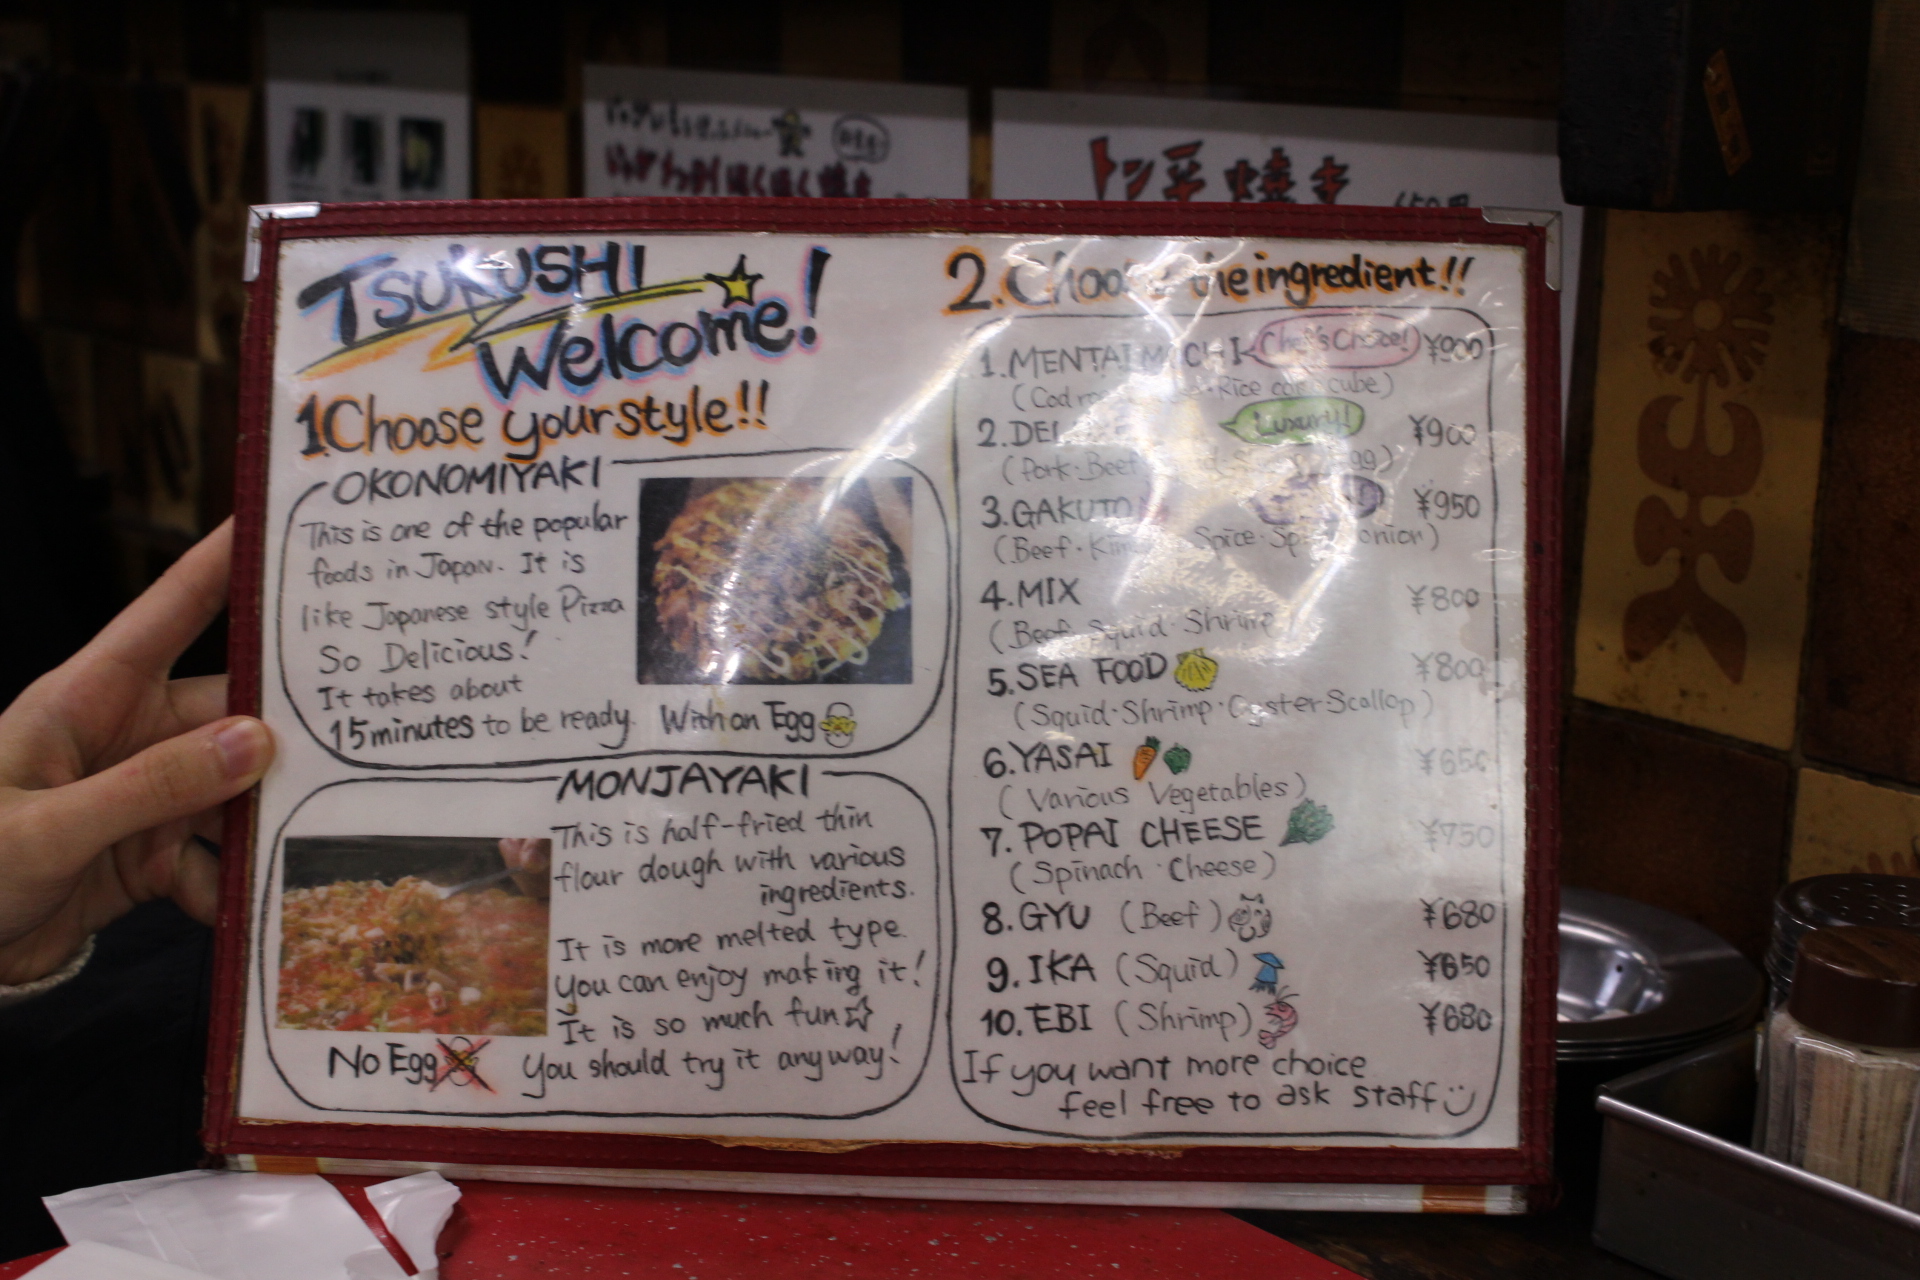 トン平焼き
650円
TSUKUSHI
Welcome!
1.Choose your style!!
OKONOMIYAKI
This is one of the popular
foods in Japan. It is
like Japanese style Pizza
So Delicious!
It takes about
15minutes to be ready.
With an Egg
MONJAYAKI
This is half-fried thin
flour dough with various
ingredients.
It is more melted type.
You can enjoy making it!
It is so much fun☆
No Egg
You should try it anyway!
2.Choose the ingredient!!
1.MENTAI MOCHI Chef's Choice! ¥900
(Cod Rice cake cube)
2.DEL Luxury! ¥900
(Pork・Beef Egg)
3.GAKUTO ¥950
(Beef・Kim Spice・Sp onion)
4.MIX ¥800
(Beef・Squid・Shrimp)
5.SEA FOOD ¥800
(Squid・Shrimp・Oyster・Scallop)
6.YASAI ¥650
(Various Vegetables)
7.POPAI CHEESE ¥750
(Spinach・Cheese)
8.GYU (Beef) ¥680
9.IKA (Squid) ¥650
10.EBI (Shrimp) ¥680
If you want more choice
feel free to ask staff